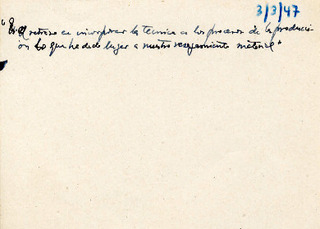 3/3/47
"Es el retraso en incorporar la técnica a los procesos de la producci-
ón lo que ha dado lugar a nuestro material"